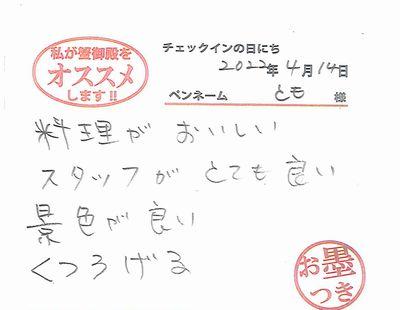 私が蟹御殿を
オススメ
します!!
チェックインの日にち
2022年4月14日
ペンネーム とも 様
料理が おいしい
スタッフが とても良い
景色が良い
くつろげる
お墨
つき